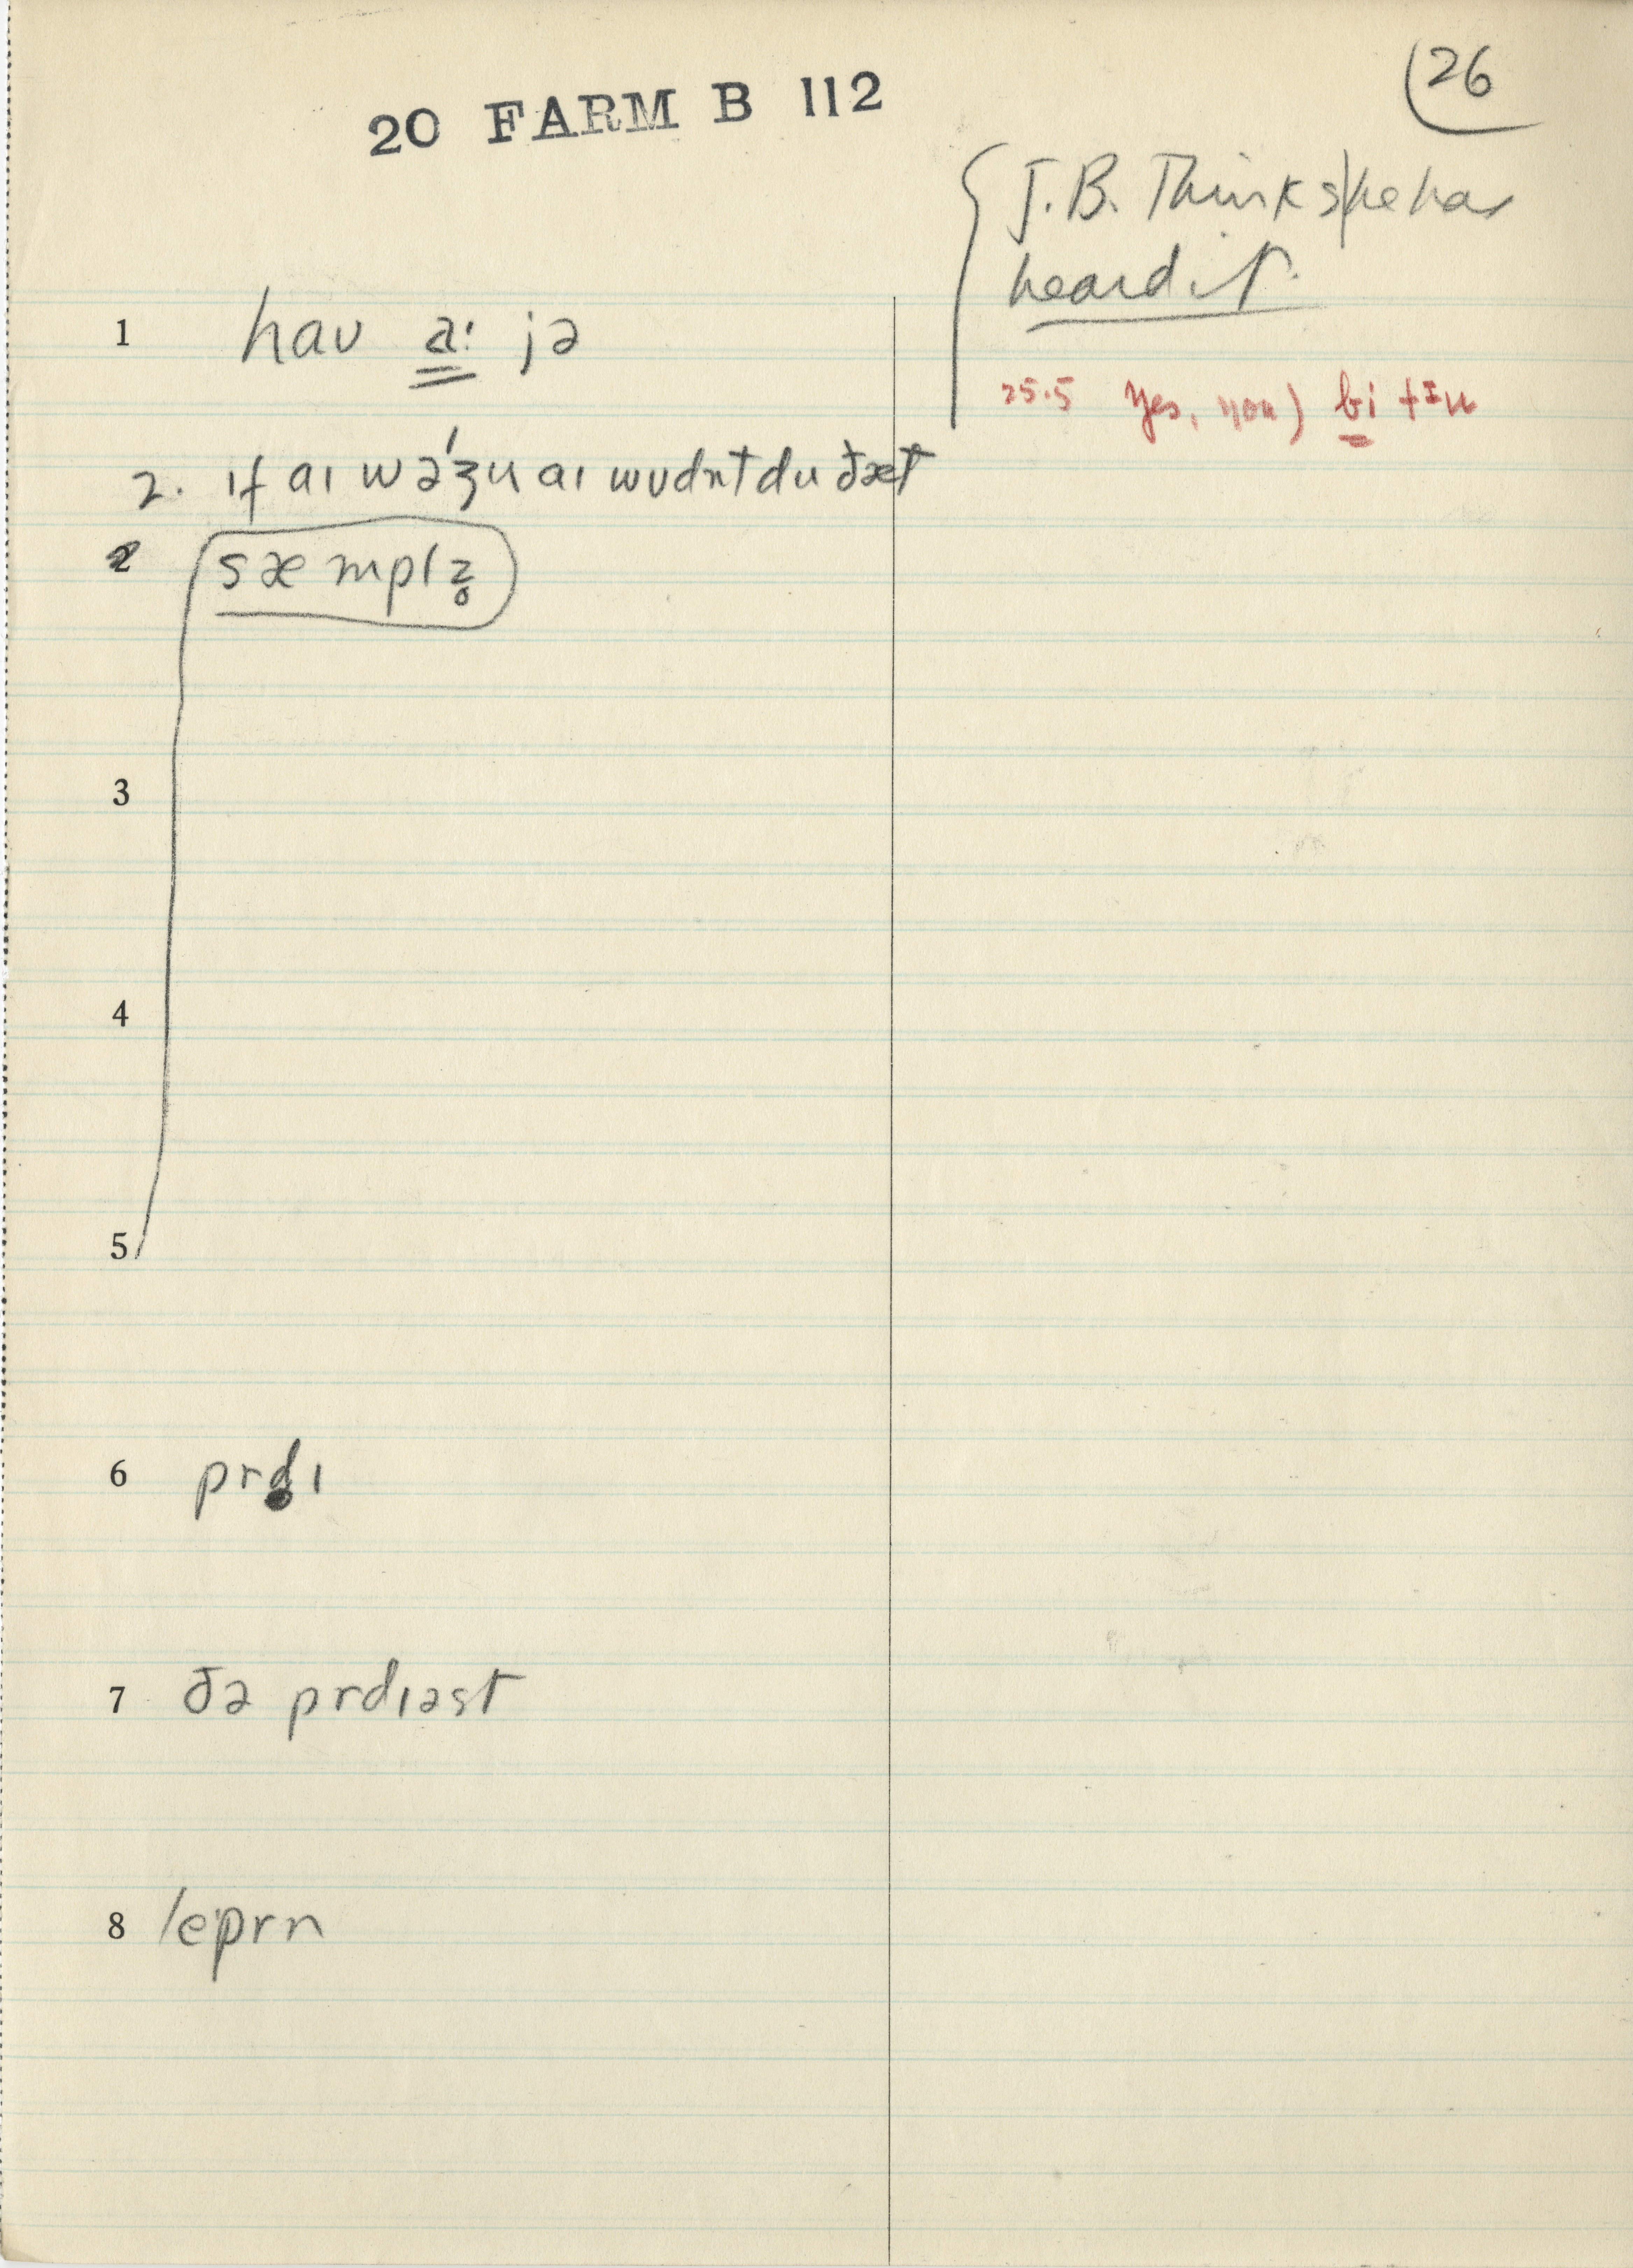 20 FARM B 112
26
J.B. Thinks he has
heard it.
1 hau a: jə
25.5 Yes, you) bi tɪu
2. ɪf aɪ wəʒu aɪ wʊdnt du ðæt
2 sæmplz̥
3
4
5
6 prdɪ
7 ðə prdɪəst
8 eprn